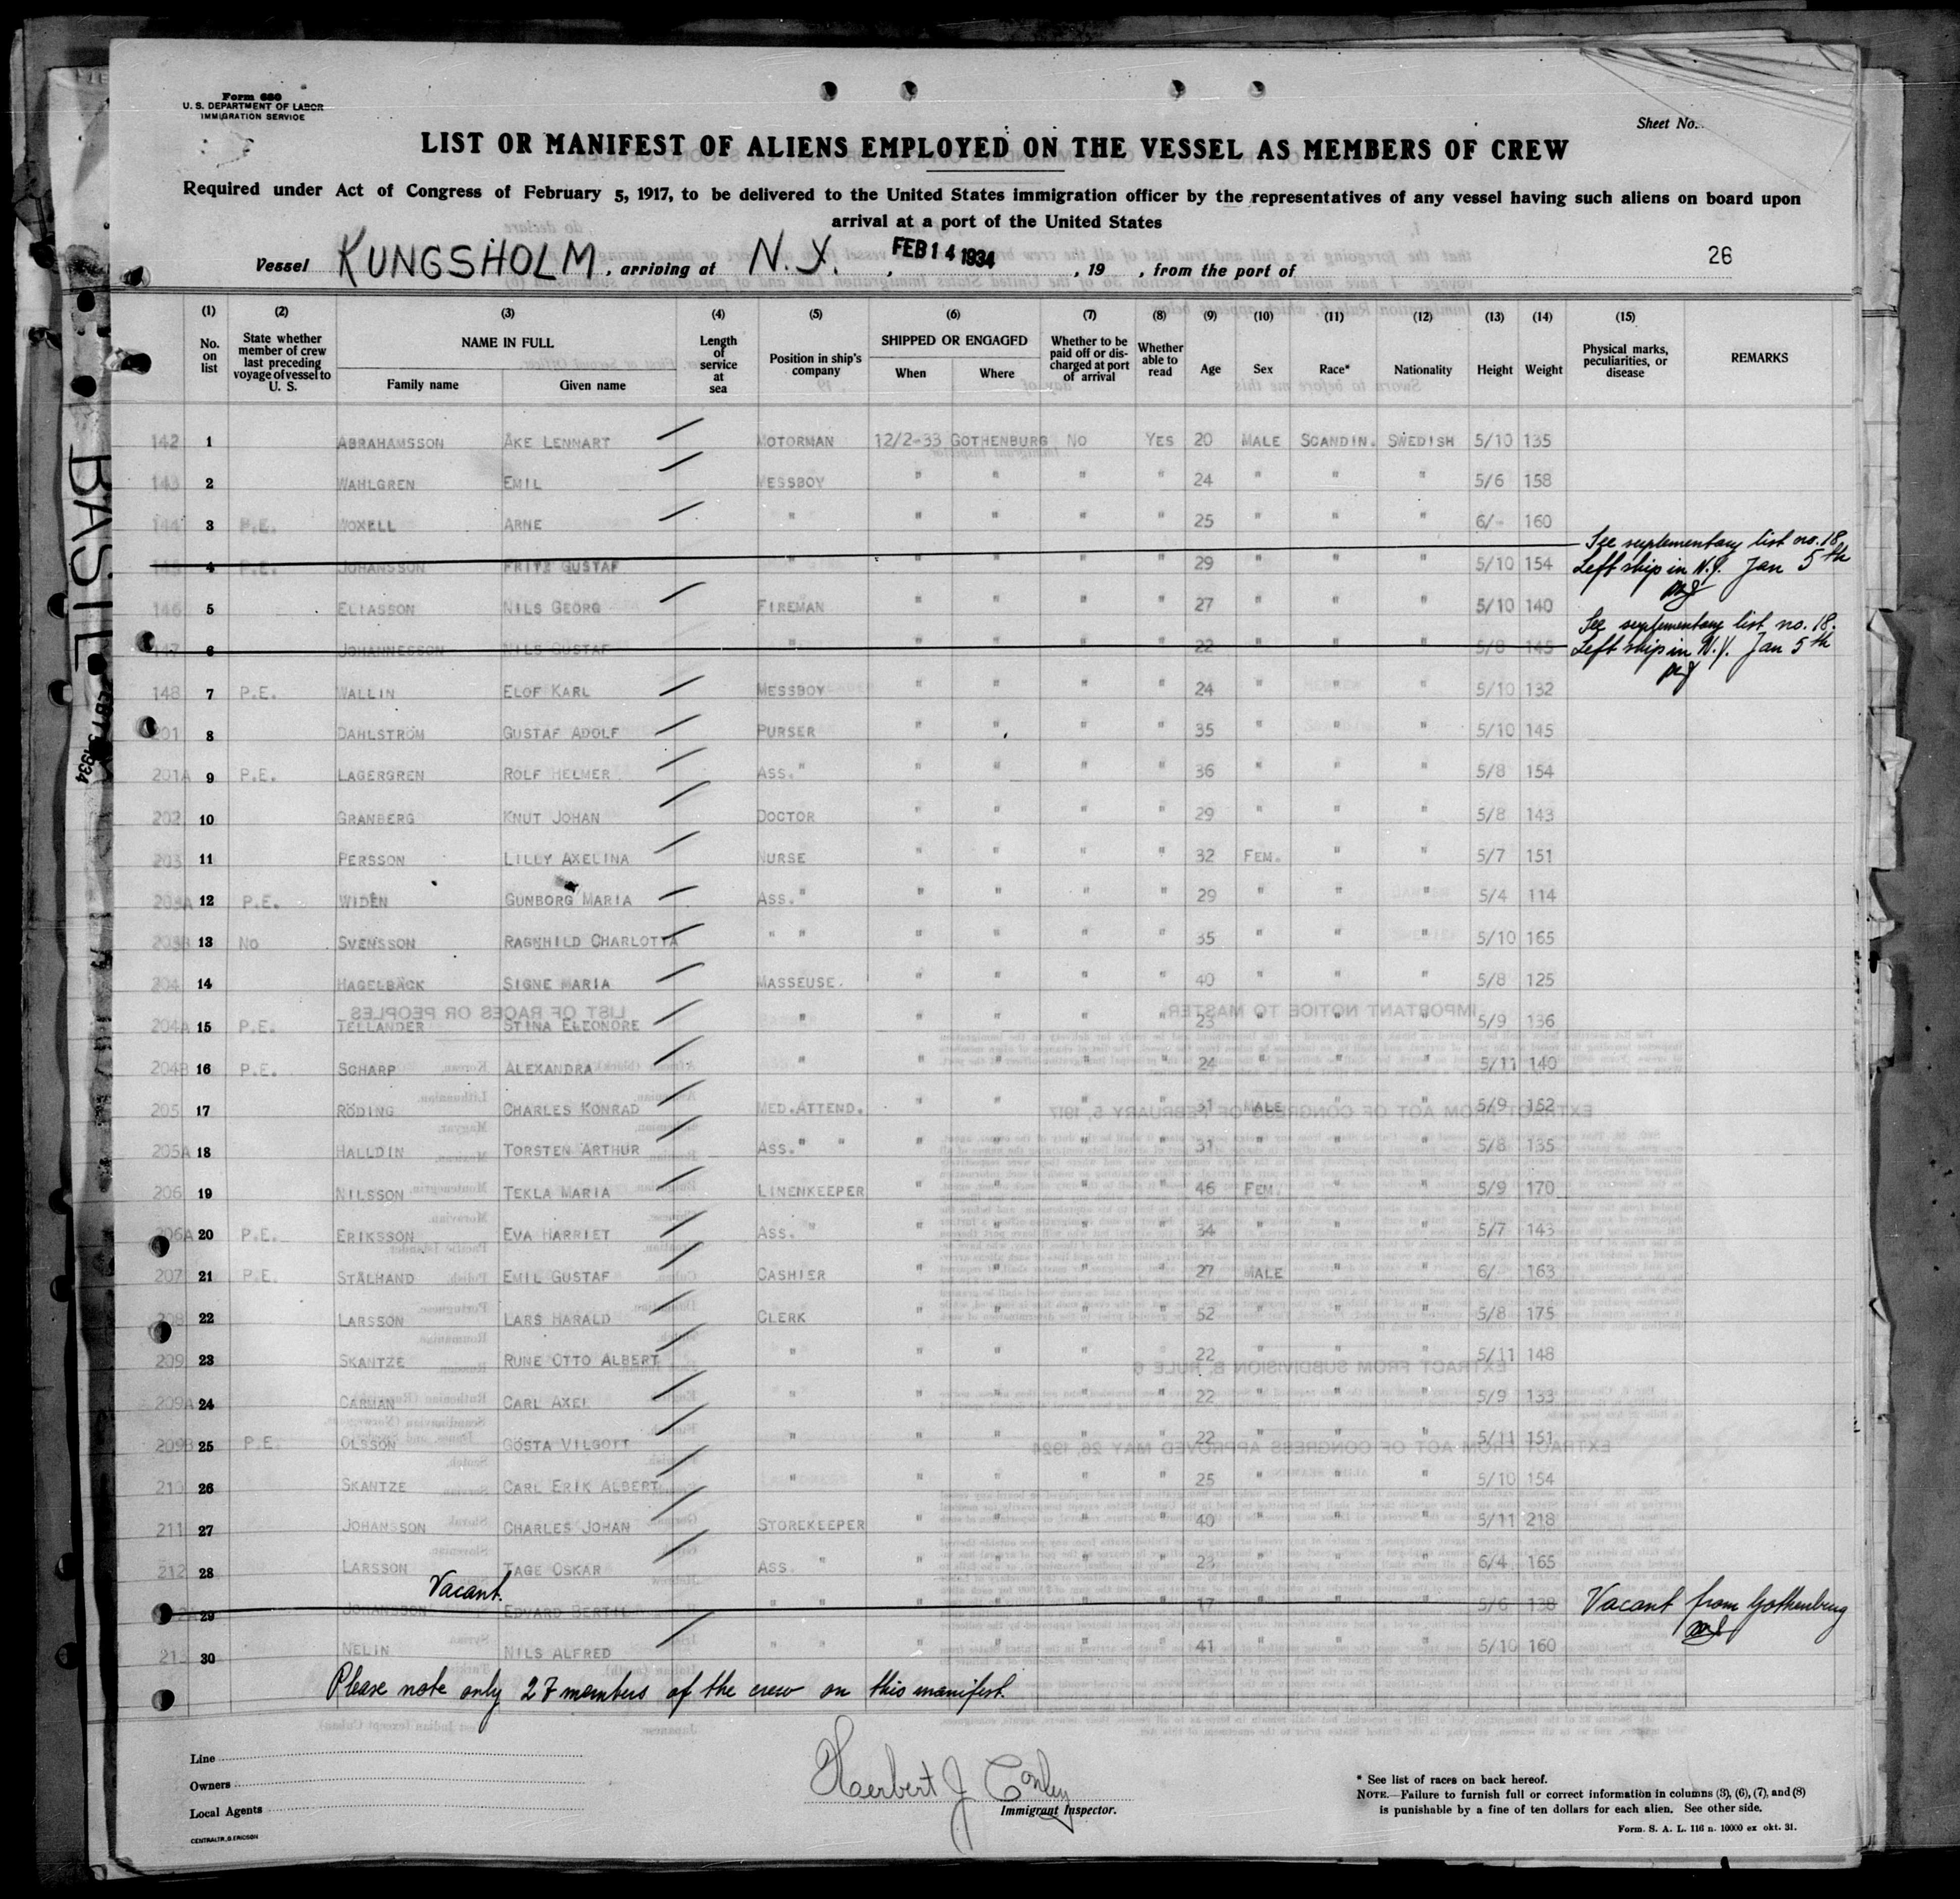 Form 680
U. S. DEPARTMENT OF LABOR
IMMIGRATION SERVICE
Sheet No.
LIST OR MANIFEST OF ALIENS EMPLOYED ON THE VESSEL AS MEMBERS OF CREW
Required under Act of Congress of February 5, 1917, to be delivered to the United States immigration officer by the representatives of any vessel having such aliens on board upon
arrival at a port of the United States
Vessel KUNGSHOLM, arriving at N.Y., FEB 14 1934, 19 , from the port of 26
(1) No. on list (2) State whether member of crew last preceding voyage of vessel to U. S. (3) NAME IN FULL Family name Given name (4) Length of service at sea (5) Position in ship's company (6) SHIPPED OR ENGAGED When Where (7) Whether to be paid off or discharged at port of arrival (8) Whether able to read (9) Age (10) Sex (11) Race* (12) Nationality (13) Height (14) Weight (15) Physical marks, peculiarities, or disease REMARKS
142 1 ABRAHAMSSON ÅKE LENNART MOTORMAN 12/2-33 GOTHENBURG NO YES 20 MALE SCANDIN. SWEDISH 5/10 135
143 2 WAHLGREN EMIL MESSBOY " " " " 24 " " " 5/6 158
144 3 P.E. WOXELL ARNE " " " " " 25 " " " 6/- 160
See suplementary list no. 18
145 4 P.E. JOHANSSON FRITZ GUSTAF " " " " " 29 " " " 5/10 154 Left ship in N.Y. Jan 5th
146 5 ELIASSON NILS GEORG FIREMAN " " " " 27 " " " 5/10 140
See suplementary list no. 18.
147 6 JOHANNESSON NILS GUSTAF " " " " " 22 " " " 5/8 145 Left ship in N.Y. Jan 5th
148 7 P.E. WALLIN ELOF KARL MESSBOY " " " " 24 " " " 5/10 132
201 8 DAHLSTRÖM GUSTAF ADOLF PURSER " " " " 35 " " " 5/10 145
201A 9 P.E. LAGERGREN ROLF HELMER ASS. " " " " " 36 " " " 5/8 154
202 10 GRANBERG KNUT JOHAN DOCTOR " " " " 29 " " " 5/8 143
203 11 PERSSON LILLY AXELINA NURSE " " " " 32 FEM. " " 5/7 151
203A 12 P.E. WIDÉN GUNBORG MARIA ASS. " " " " " 29 " " " 5/4 114
203B 13 NO SVENSSON RAGNHILD CHARLOTTA " " " " " " 35 " " " 5/10 165
204 14 HAGELBÄCK SIGNE MARIA MASSEUSE. " " " " 40 " " " 5/8 125
204A 15 P.E. TELLANDER STINA ELEONORE " " " " " 23 " " " 5/9 136
204B 16 P.E. SCHARP ALEXANDRA " " " " " 24 " " " 5/11 140
205 17 RÖDING CHARLES KONRAD MED.ATTEND. " " " " 31 MALE " " 5/9 152
205A 18 HALLDIN TORSTEN ARTHUR ASS. " " " " " " 31 " " " 5/8 135
206 19 NILSSON TEKLA MARIA LINENKEEPER " " " " 46 FEM. " " 5/9 170
206A 20 P.E. ERIKSSON EVA HARRIET ASS. " " " " " 34 " " " 5/7 143
207 21 P.E. STÅLHAND EMIL GUSTAF CASHIER " " " " 27 MALE " " 6/ 163
208 22 LARSSON LARS HARALD CLERK " " " " 52 " " " 5/8 175
209 23 SKANTZE RUNE OTTO ALBERT " " " " " 22 " " " 5/11 148
209A 24 CARMAN CARL AXEL " " " " " 22 " " " 5/9 133
209B 25 P.E. OLSSON GÖSTA VILGOTT " " " " " 22 " " " 5/11 151
210 26 SKANTZE CARL ERIK ALBERT " " " " " 25 " " " 5/10 154
211 27 JOHANSSON CHARLES JOHAN STOREKEEPER " " " " 40 " " " 5/11 218
212 28 LARSSON TAGE OSKAR ASS. " " " " " 23 " " " 6/4 165
Vacant.
29 JOHANSSON EDVARD BERTIL " " " " " " 17 " " " 5/6 138 Vacant from Gothenburg
213 30 NELIN NILS ALFRED " " " " " " 41 " " " 5/10 160
Please note only 27 members of the crew on this manifest.
Line
Owners
Local Agents
CENTRALTR. G. ERICSON
Herbert J Conley
Immigrant Inspector.
* See list of races on back hereof.
NOTE.—Failure to furnish full or correct information in columns (3), (6), (7), and (8)
is punishable by a fine of ten dollars for each alien. See other side.
Form. S. A. L. 116 n. 10000 ex okt. 31.
BASIL